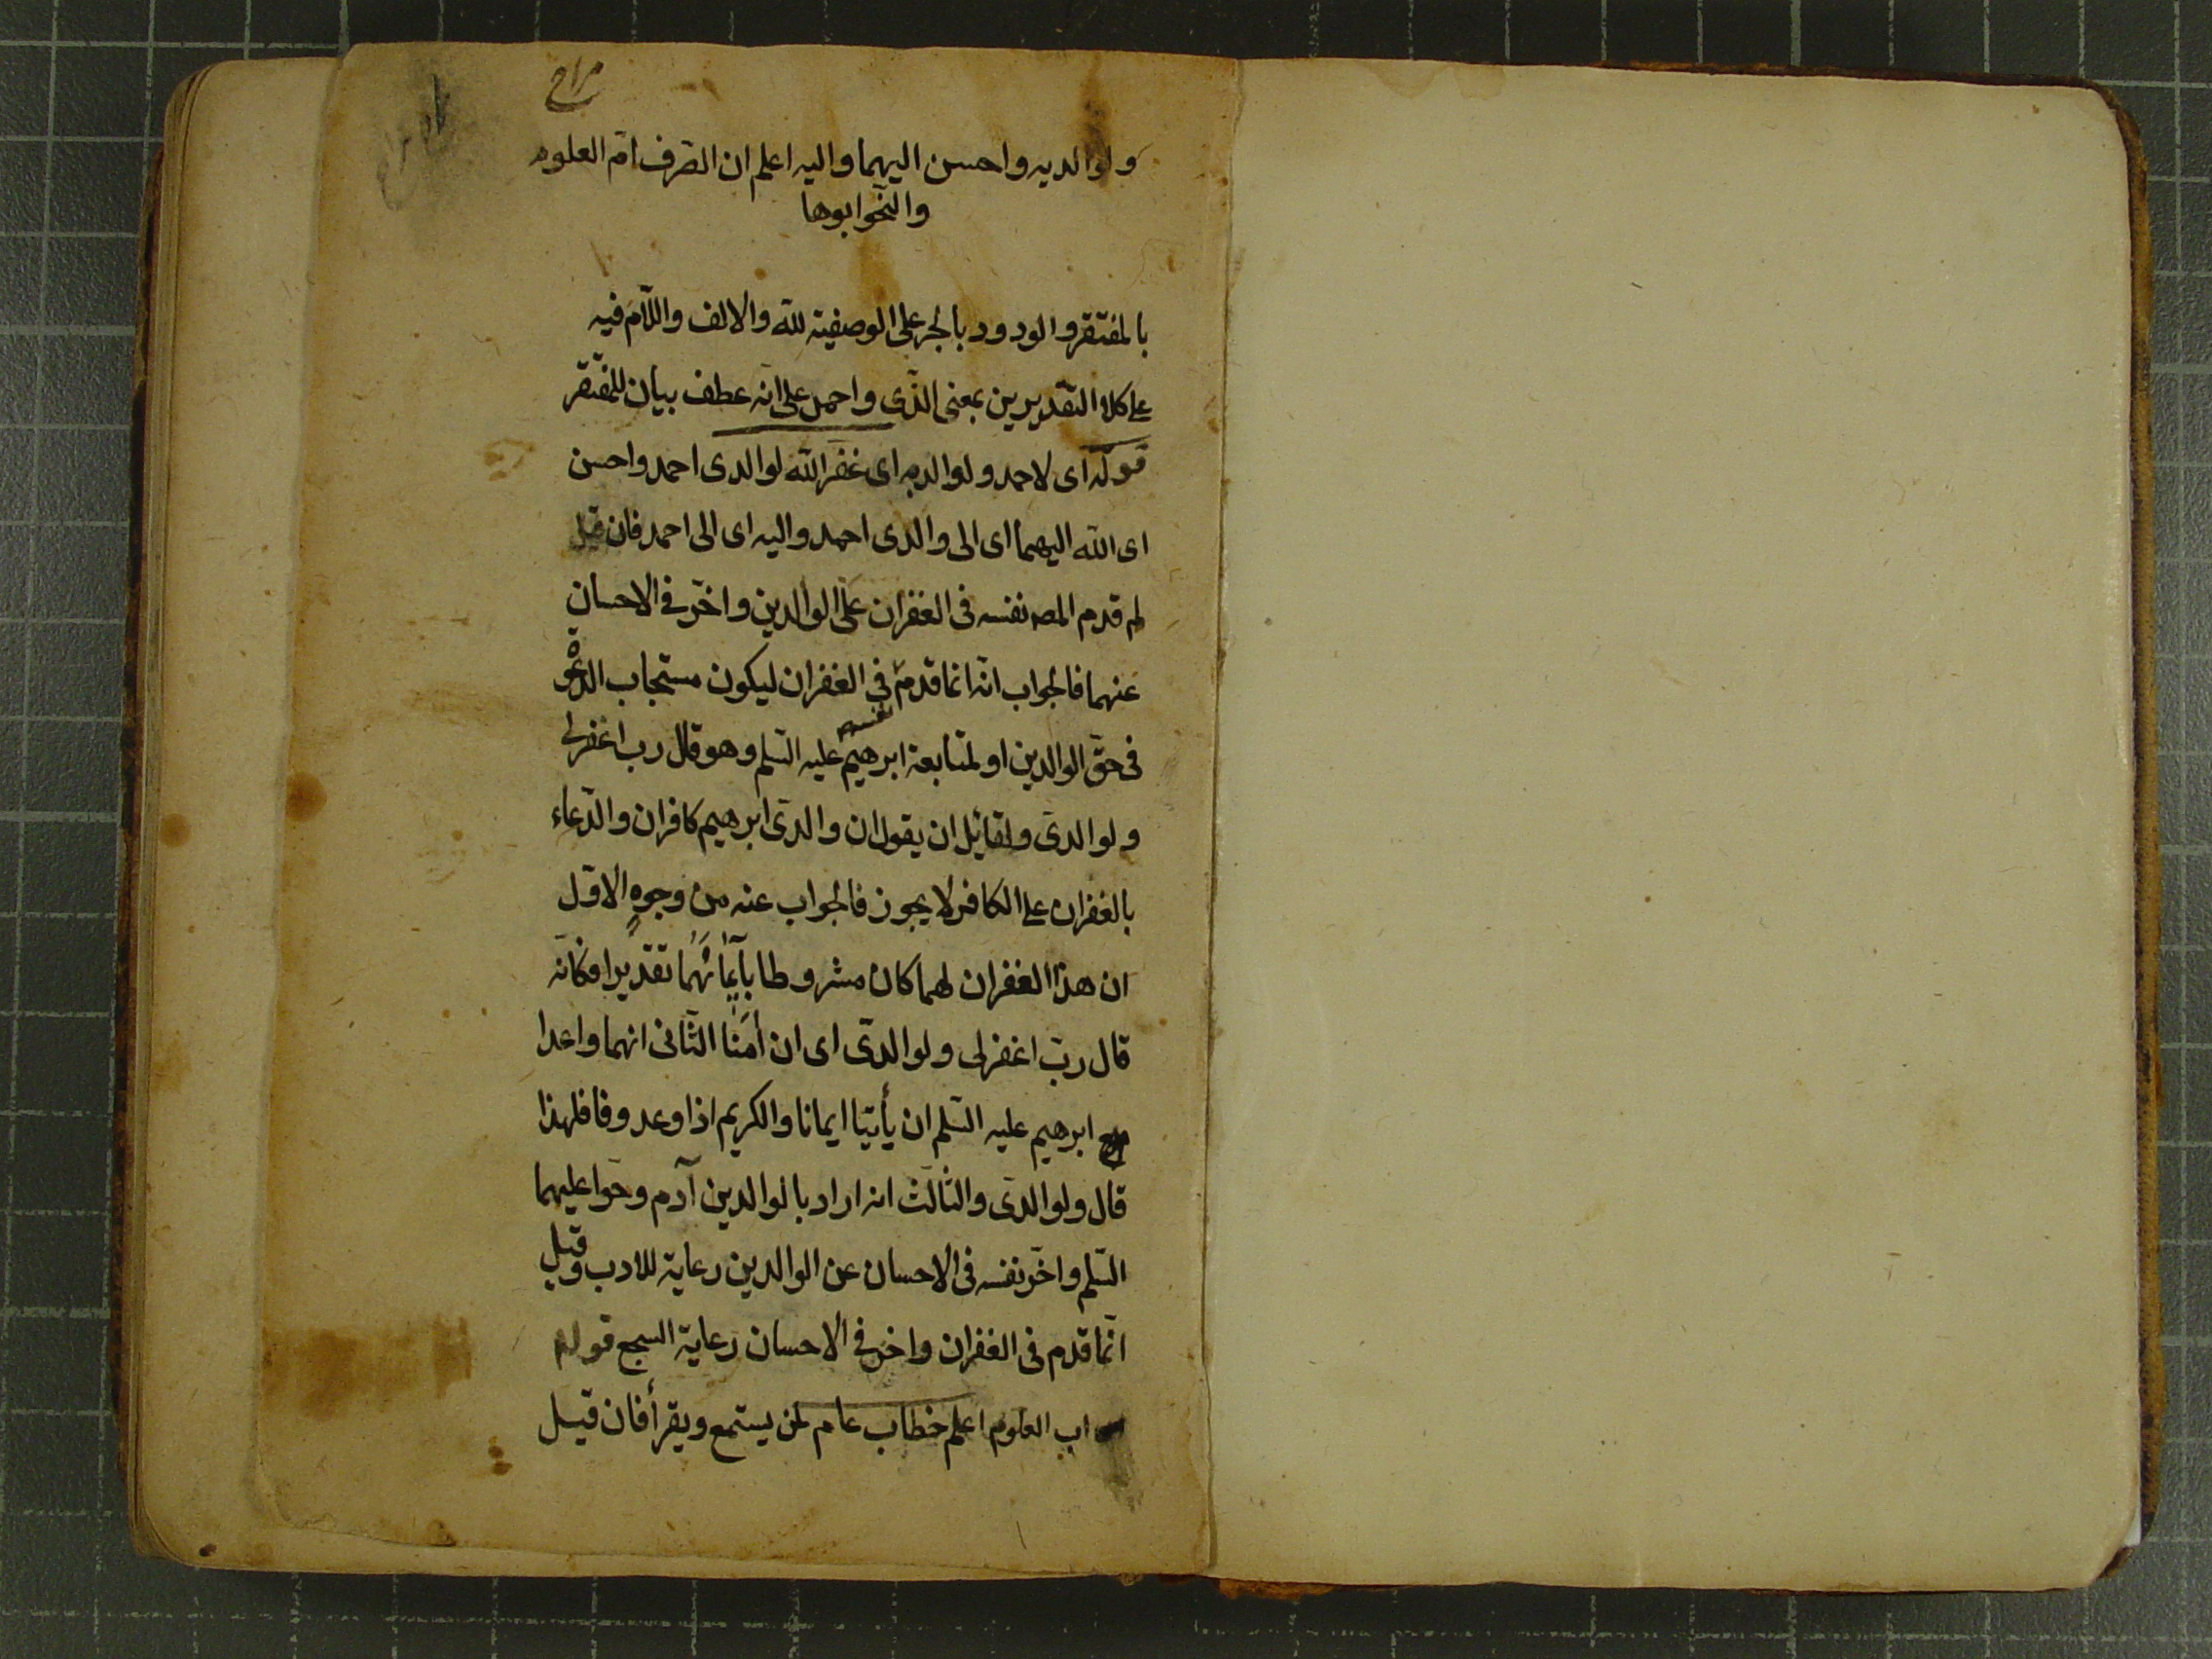 مراح
ولوالديه واحسن اليهما واليه اعلم ان الصّرف امّ العلوم
والنّحو ابوها
بالمفتقر والودود بالجر على الوصفية للّه والالف واللّام فيه
على كلا التقديرين بمعنى الذى واحمد على انّه عطف بيان للمفتقر
قوله اى لاحمد ولوالديه اى غفر اللّه لوالدى احمد واحسن
اى اللّه اليهما اى الى والدى احمد واليه اى الى احمد فان قيل
لم قدم المصـ نفسه فى الغفران على الوالدين واخّر فى الاحسان
عنهما فالجواب انّه انما قدم نفسه فى الغفران ليكون مستجاب الدعوة
فى حقّ الوالدين او لمتابعة ابرهيم عليه السّلم وهو قال رب اغفر لى
ولوالدى ولقائل ان يقول ان والدى ابرهيم كافران والدّعاء
بالغفران على الكافر لا يجوز فالجواب عنه من وجوهٍ الاوّل
ان هذا الغفران لهما كان مشروطا بايمانهما تقديرا فكانّه
قال ربّ اغفر لى ولوالدىّ اى ان اٰمَنَا الثّانى انهما واعدا
ابرهيم عليه السّلم ان يأتيا ايمانا والكريم اذا وعد وفا فلهذا
قال ولوالدى والثالث انه اراد بالوالدين آدم وحوّا عليهما
السّلم واخّر نفسه فى الاحسان عن الوالدين رعاية للادب وقيل
انّما قدم فى الغفران واخّر فى الاحسان رعاية السجع قوله
اب العلوم اعلم خطاب عام لمن يستمع ويقرأ فان قيل